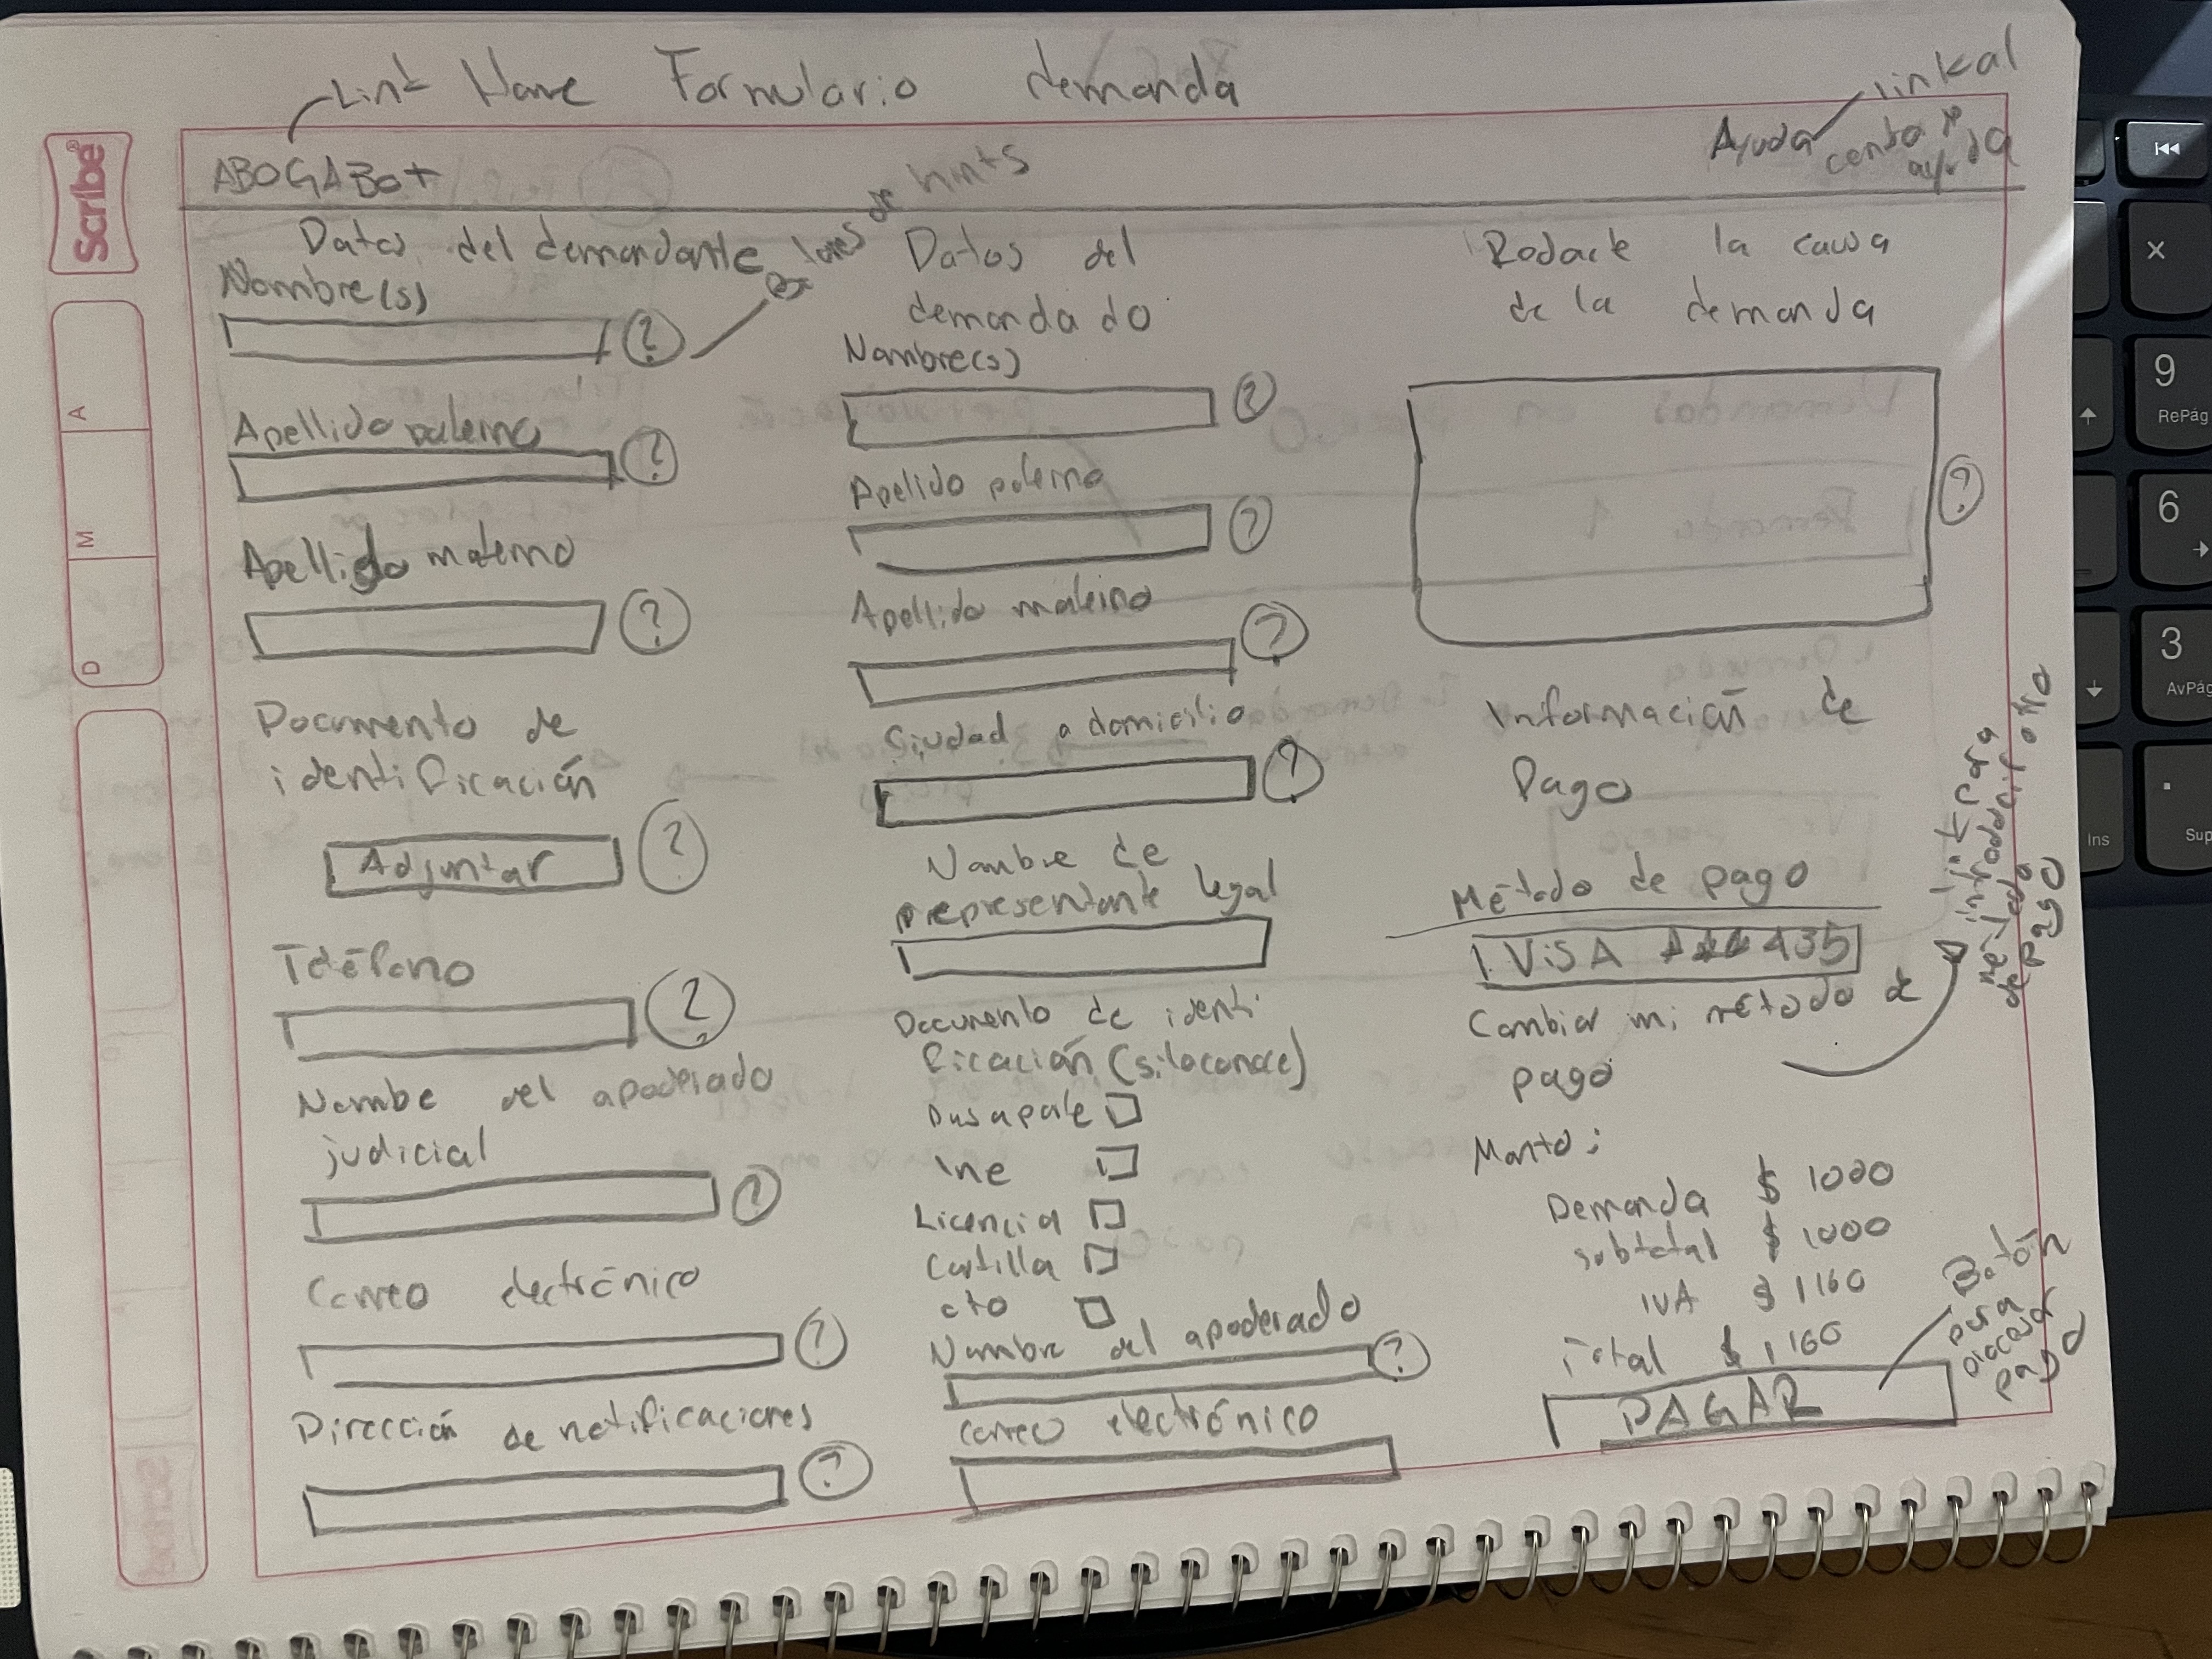 Link Home Formulario demanda
linkal
ABOGABot
Ayuda
centro de
ayuda
de hints
Datos del demandante
Nombre(s)
?
Apellido paterno
?
Apellido materno
?
Documento de
identificación
Adjuntar
?
Teléfono
?
Nombe del apoderado
judicial
?
Correo electrónico
?
Dirección de notificaciones
?
Datos del
demandado
Nombre(s)
?
Apellido paterno
?
Apellido materno
?
Ciudad o domicilio
?
Nombre de
representante legal
Documento de identi
ficación (siloconoce)
Ine
Licencia
Cartilla
oto
Nombre del apoderado
?
Correo electrónico
Redacte la causa
de la demanda
?
Información de
Pago
Método de pago
VISA *** 435
Cambiar mi método de
pago
link para
introducir otro
método
de pago
Monto:
Demanda $ 1000
subtotal $ 1000
IVA $ 1160
Total $ 1160
PAGAR
Botón
para
procesar
pago
Scribe
D M A
9
RePág
6
3
AvPág
Ins
Sup